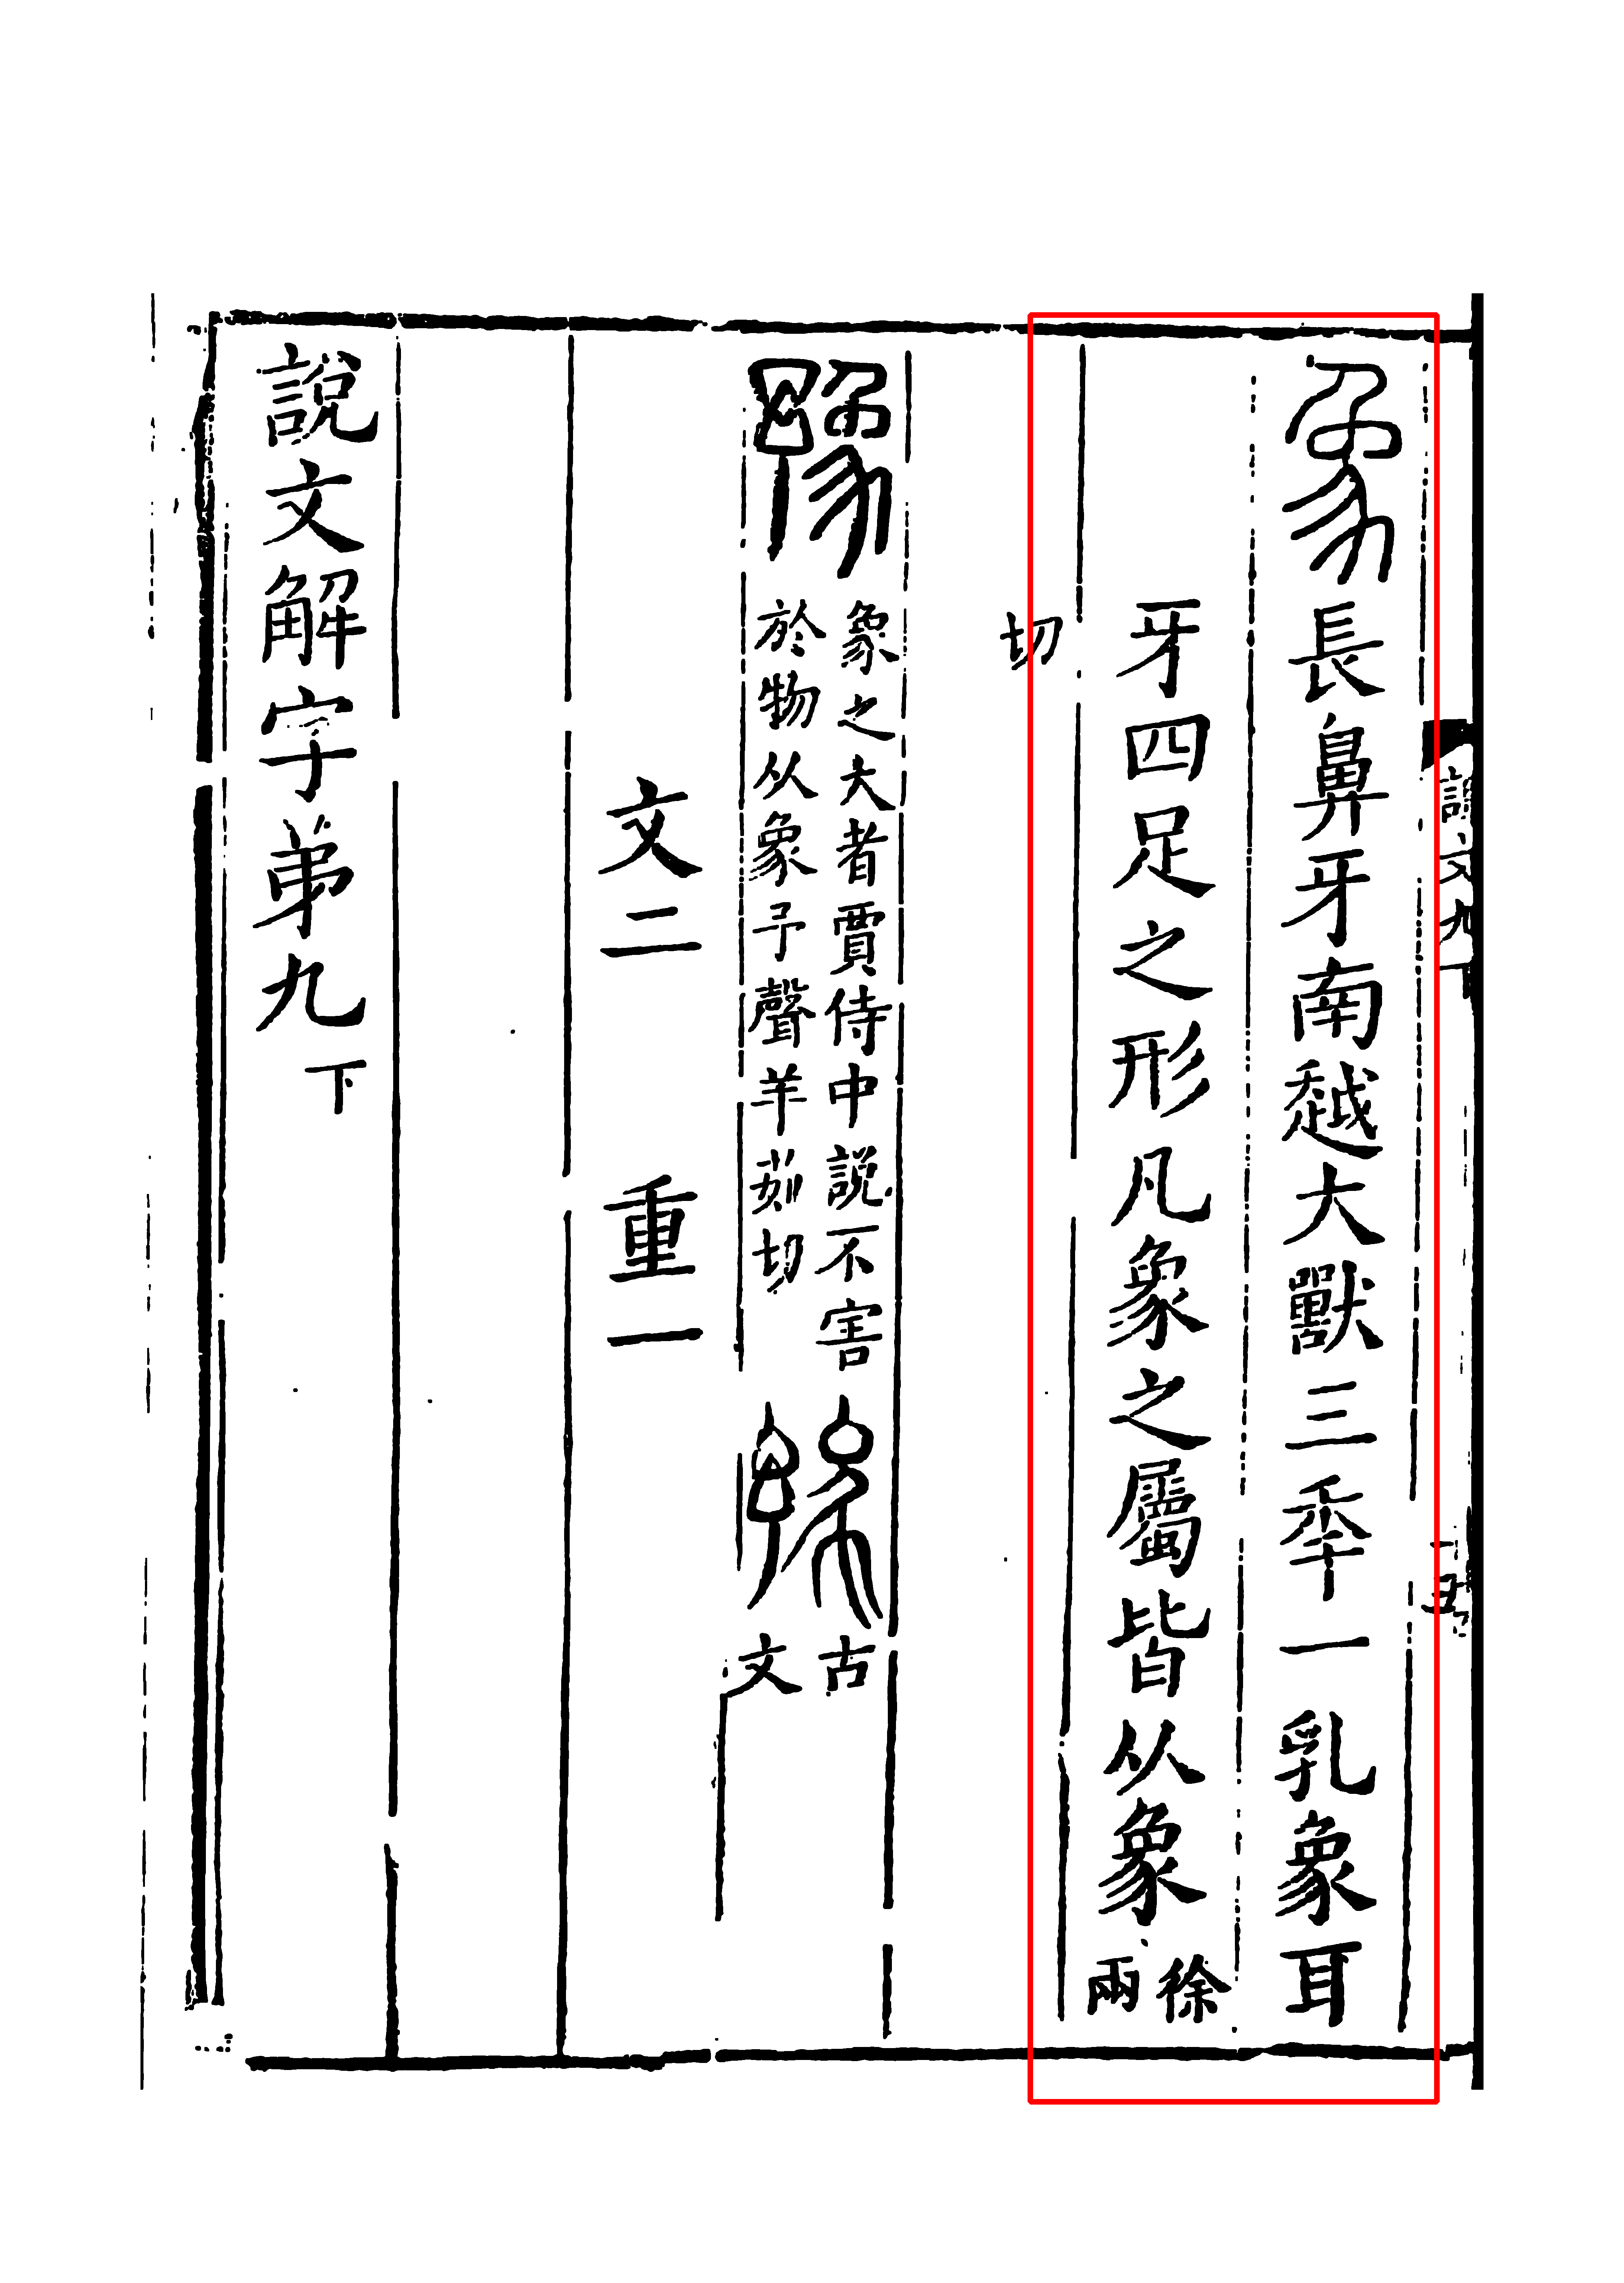 象長鼻牙南越大獸三秊一乳象耳
牙四足之形凡象之屬皆从象徐兩
切
豫象之大者賈侍中說不害
於物从象予聲羊茹切
古文
文二 重一
說文解字弟九下